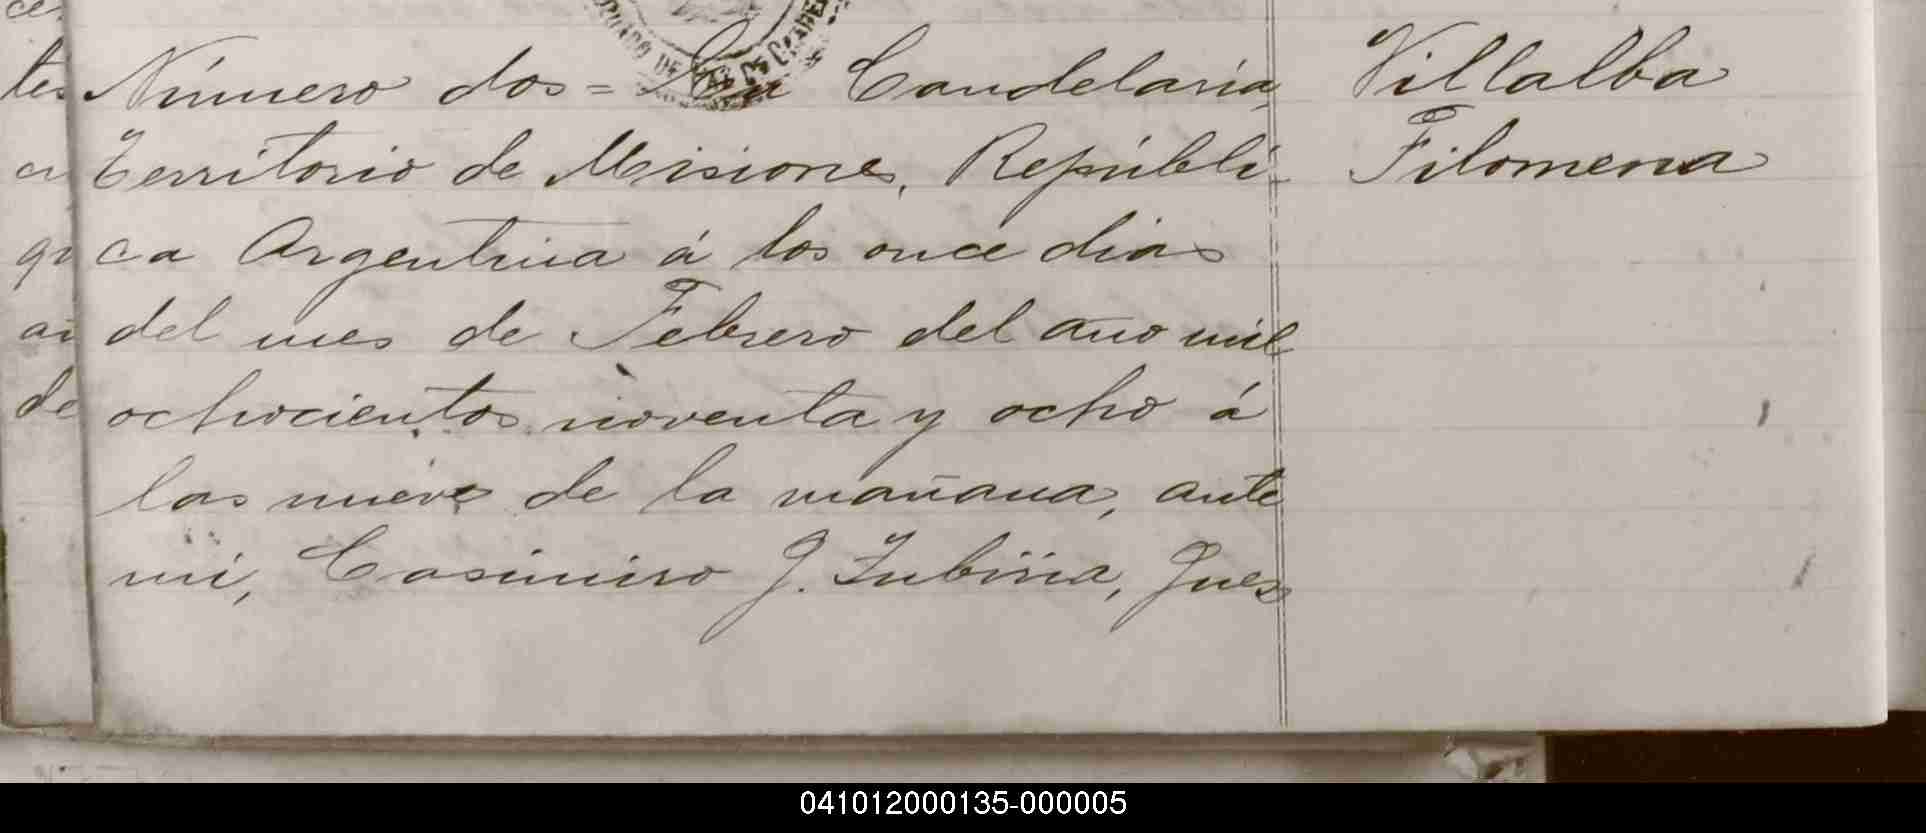 Número dos = La Candelaria,
Territorio de Misiones, Repúbli-
ca Argentina á los once dias
del mes de Febrero del año mil
ochocientos noventa y ocho á
las nueve de la mañana, ante
mi, Casimiro J. Zubiria, Juez
Villalba
Filomena
tes
de
041012000135-000005